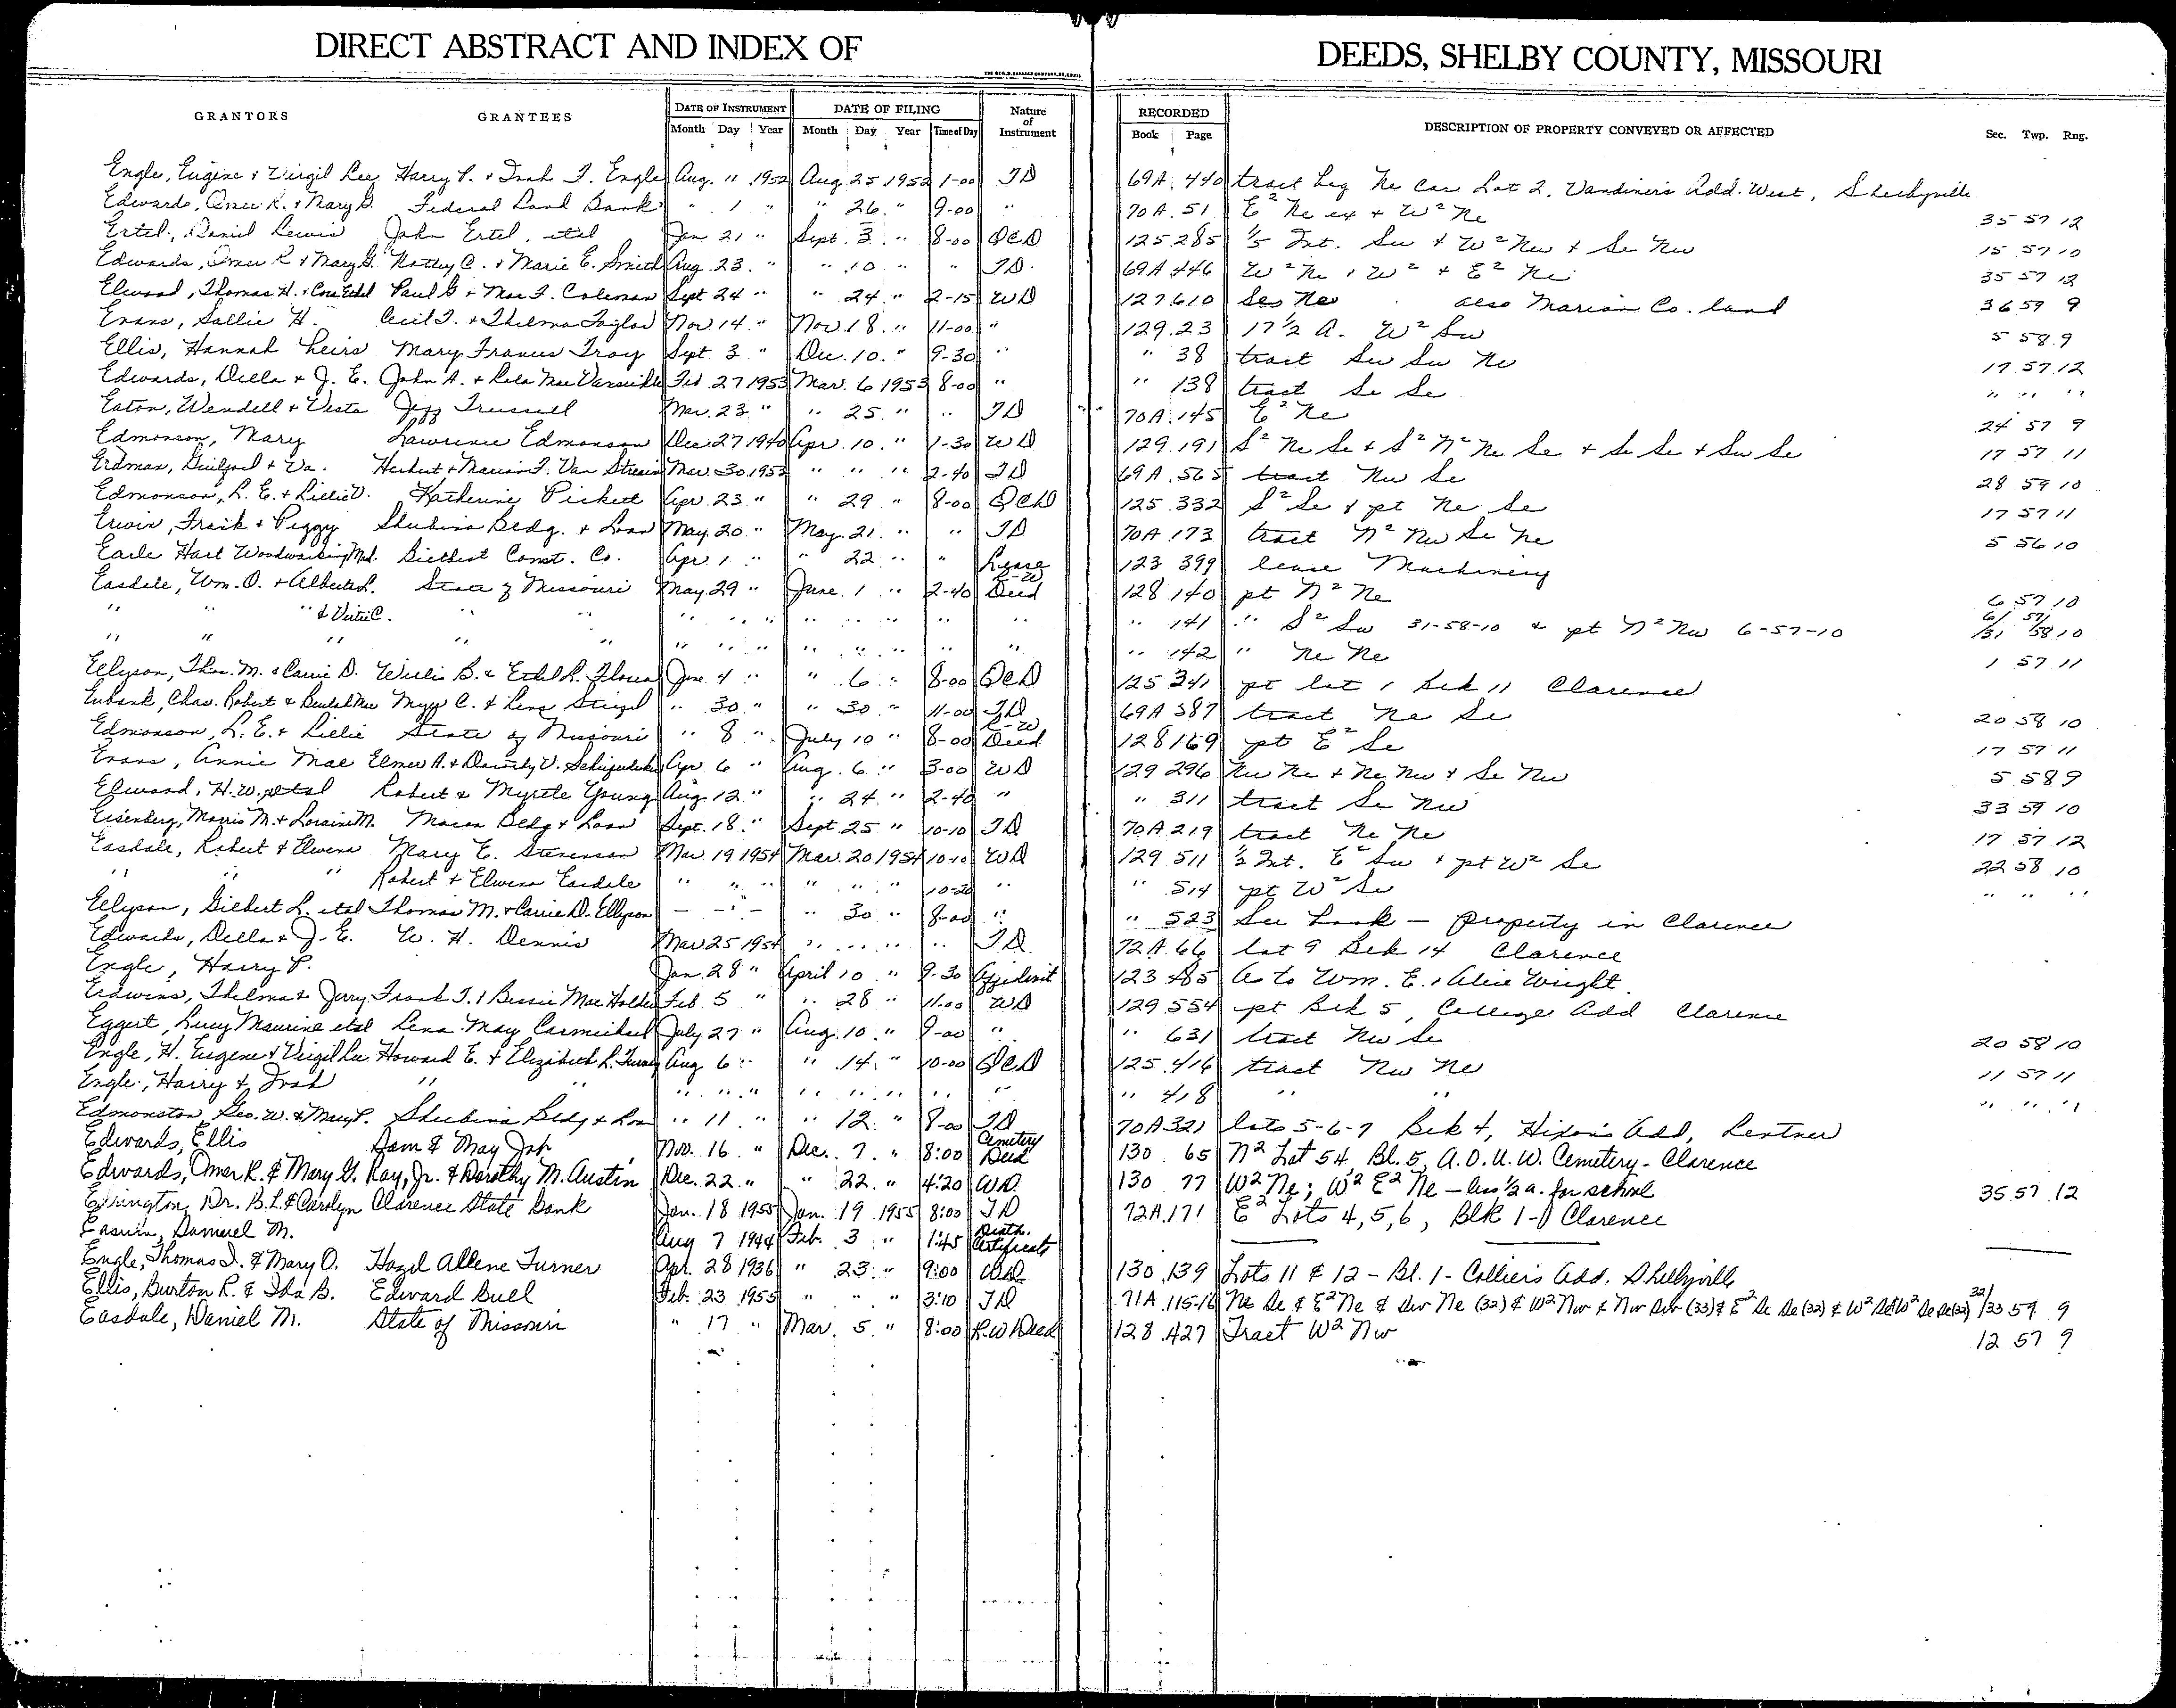 DIRECT ABSTRACT AND INDEX OF DEEDS, SHELBY COUNTY, MISSOURI
GRANTORS GRANTEES DATE OF INSTRUMENT DATE OF FILING Nature of Instrument RECORDED DESCRIPTION OF PROPERTY CONVEYED OR AFFECTED Sec. Twp. Rng.
Month Day Year Month Day Year Time of Day Book Page
Engle, Eugene & Virgil Lee Harry P. & Inah I. Engle Aug. 11 1952 Aug 25 1952 1-00 TD 69A 440 tract beg Ne cor Lot 2, Vandiner's Add. West, Shelbyville
Edwards, Omer R. & Mary G. Federal Land Bank " 1 " " 26 " 9-00 " 70A 51 E² Ne ex + W² Ne 35 57 12
Ertel, Daniel Lewis John Ertel, etal Jan 21 " Sept. 3 " 8-00 QCD 125 285 1/5 Int. Sw + W² Nw + Se Nw 15 57 10
Edwards, Omer R & Mary G. Nathy C. & Marie E. Smith Aug. 23 " " 10 " " TD 69A 446 W² Ne & W² + E² Ne 35 57 12
Elwood, Thomas H. & Cora Ethel Paul G & Mae F. Coleman Sept 24 " " 24 " 2-15 WD 127 610 Se Ne also Marion Co. land 36 59 9
Evans, Sallie H. Cecil T. & Thelma Taylor Nov. 14 " Nov. 18 " 11-00 " 129 23 17 1/2 A. W² Sw 5 58 9
Ellis, Hannah heirs Mary Frances Troy Sept 3 " Dec. 10 " 9-30 " " 38 tract Sw Sw Ne 17 57 12
Edwards, Della & J. E. John A. & Lola Mae Vanskike Feb. 27 1953 Mar. 6 1953 8-00 " " 138 tract Se Se " " "
Eaton, Wendell & Vesta Jezz Trussell Mar. 23 " " 25 " " TD 70A 145 E² Ne 24 57 9
Edmonson, Mary Lawrence Edmonson Dec 27 1940 Apr. 10 " 1-30 WD 129 191 S² Ne Se & S² N² Ne Se + Se Se + Sw Se 17 57 11
Erdman, Guilford & Va. Herbert & Marion F. Van Streain Mar. 30 1953 " " " 2-40 TD 69A 565 tract Nw Se 28 59 10
Edmonson, L. E. & Lillie V. Katherine Pickett Apr 23 " " 29 " 8-00 QCD 125 332 S² Se & pt Ne Se 17 57 11
Erwin, Frank & Peggy Shelbina Bldg. & Loan May 20 " May 21 " " TD 70A 173 tract N² Nw Se Ne 5 56 10
Earle Hart Woodworking Mch. Biethest Const. Co. Apr 1 " " 22 " " Lease 123 399 lease Machinery
Easdale, Wm. O. & Alberta L. State of Missouri May 29 " June 1 " 2-40 R-W Deed 128 140 pt N² Ne 6 57 10
" " " & Virtie C. " " " " " " " " " " " 141 " S² Sw 31-58-10 & pt N² Nw 6-57-10 6/31 57/58 10
" " " " " " " " " " " " " " 142 " Ne Ne 1 57 11
Ellyson, Thos. M. & Carrie D. Willis B. & Ethel R. June 4 " " 6 " 8-00 QCD 125 341 pt lot 1 Blk 11 Clarence
Eubank, Chas. Robert & Beulah Mae C. & Lena Steigel " 30 " " 30 " 11-00 TD 69A 387 tract Ne Se 20 58 10
Edmonson, L. E. & Lillie State of Missouri " 8 " July 10 " 8-00 R-W Deed 128 169 pt E² Se 17 57 11
Evans, Annie Mae Elmer A. & Dorothy V. Apr 6 " Aug. 6 " 3-00 WD 129 296 Nw Ne + Ne Nw & Se Nw 5 58 9
Elwood, H. W. etal Robert & Myrtle Young Aug 12 " " 24 " 2-40 " " 311 tract Se Nw 33 59 10
Eisenberg, Morris M. & Loraine M. Macon Bldg & Loan Sept. 18 " Sept 25 " 10-10 TD 70A 219 tract Ne Ne 17 57 12
Easdale, Robert & Elwena Mary E. Stevenson Mar 19 1954 Mar. 20 1954 10-10 WD 129 511 1/2 Int. E² Sw & pt W² Se 22 58 10
" " " Robert & Elwena Easdale " " " " " " 10-20 " " 514 pt W² Se " " "
Ellyson, Gilbert L. etal Thomas M. & Carrie D. Ellyson - - - " 30 " 8-00 " " 523 See book - property in Clarence
Edwards, Della & J. E. W. H. Dennis Mar 25 1954 " " " " TD 72A 66 lot 9 Blk 14 Clarence
Engle, Harry P. Jan. 28 " April 10 " 9-30 Affidavit 123 485 As to Wm. E. & Alice Wright
Edwins, Thelma & Jerry Frank T. & Bessie Mae Feb. 5 " " 28 " 11-00 WD 129 554 pt Blk 5, College Add Clarence
Eggert, Lucy Maurine etal Lena May Carmichael July 27 " Aug. 10 " 9-00 " " 631 tract Nw Se 20 58 10
Engle, H. Eugene & Virgil Lee Howard E. & Elizabeth R. Turney Aug 6 " " 14 " 10-00 QCD 125 416 tract Nw Ne 11 57 11
Engle, Harry & Inah " " " " " " " " " " " 418 " " " " "
Edmonston, Geo. W. & Mary P. Shelbina Bldg & Loan " 11 " " 12 " 8-00 TD 70A 321 lots 5-6-7 Blk 4, Hixon's Add, Lentner
Edwards, Ellis Sam & May Jap Nov. 16 " Dec. 7 " 8:00 Cemetery Deed 130 65 N² Lot 54 Bl. 5, A.O.U.W. Cemetery - Clarence
Edwards, Omer R. & Mary G. Ray, Jr. & Dorothy M. Austin Dec. 22 " " 22 " 4:20 WD 130 77 W² Ne; W² E² Ne - less 1/2 a. for school 35 57 12
Edrington, Dr. B. L. & Carolyn Clarence State Bank Jan. 18 1955 Jan. 19 1955 8:00 TD 72A 171 E² Lots 4, 5, 6, Blk 1-D Clarence
Samuel M. Aug 7 1944 Feb. 3 " 1:45 Death Certificate
Engle, Thomas I. & Mary O. Hazel Allene Turner Apr. 28 1936 " 23 " 9:00 WD 130 139 Lots 11 & 12 - Bl. 1 - Collier's Add. Shelbyville
Ellis, Burton R. & Ida B. Edward Buel Feb. 23 1955 " " " 3:10 TD 71A 115-16 Ne Se & E² Ne & Sw Ne (32) & W² Nw & Nw Sw (33) & E² Se Se (32) & W² Se & W² Se Se (32) 32/33 59 9
Easdale, Daniel M. State of Missouri " 17 " Mar. 5 " 8:00 R.W Deed 128 427 Tract W² Nw 12 57 9